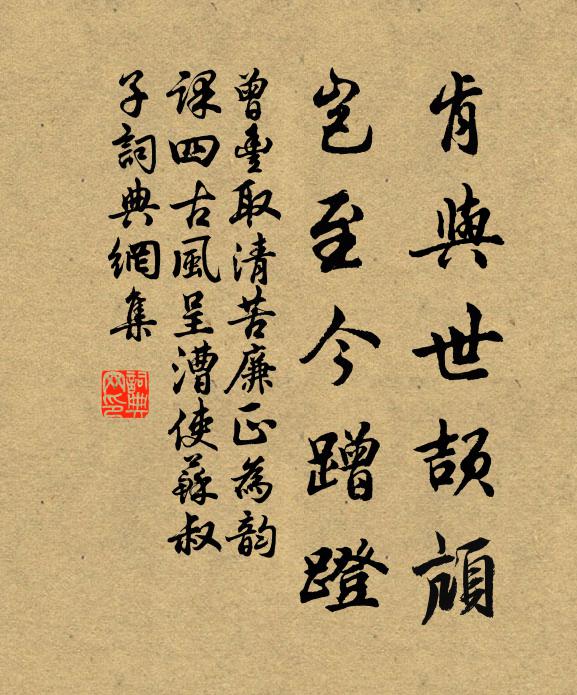 肯與世頡頏
豈至今蹭蹬
曾豐取清苦廉正為韵
課四古風呈漕使蘇叔
子詞典網集
詞典網印